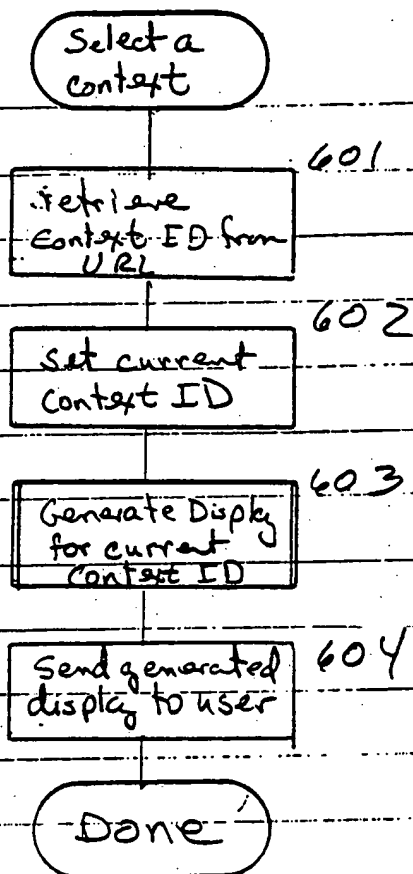 Select a
context
601
retrieve
Context ID from
URL
602
set current
Context ID
603
Generate Display
for current
Context ID
604
Send generated
display to user
Done